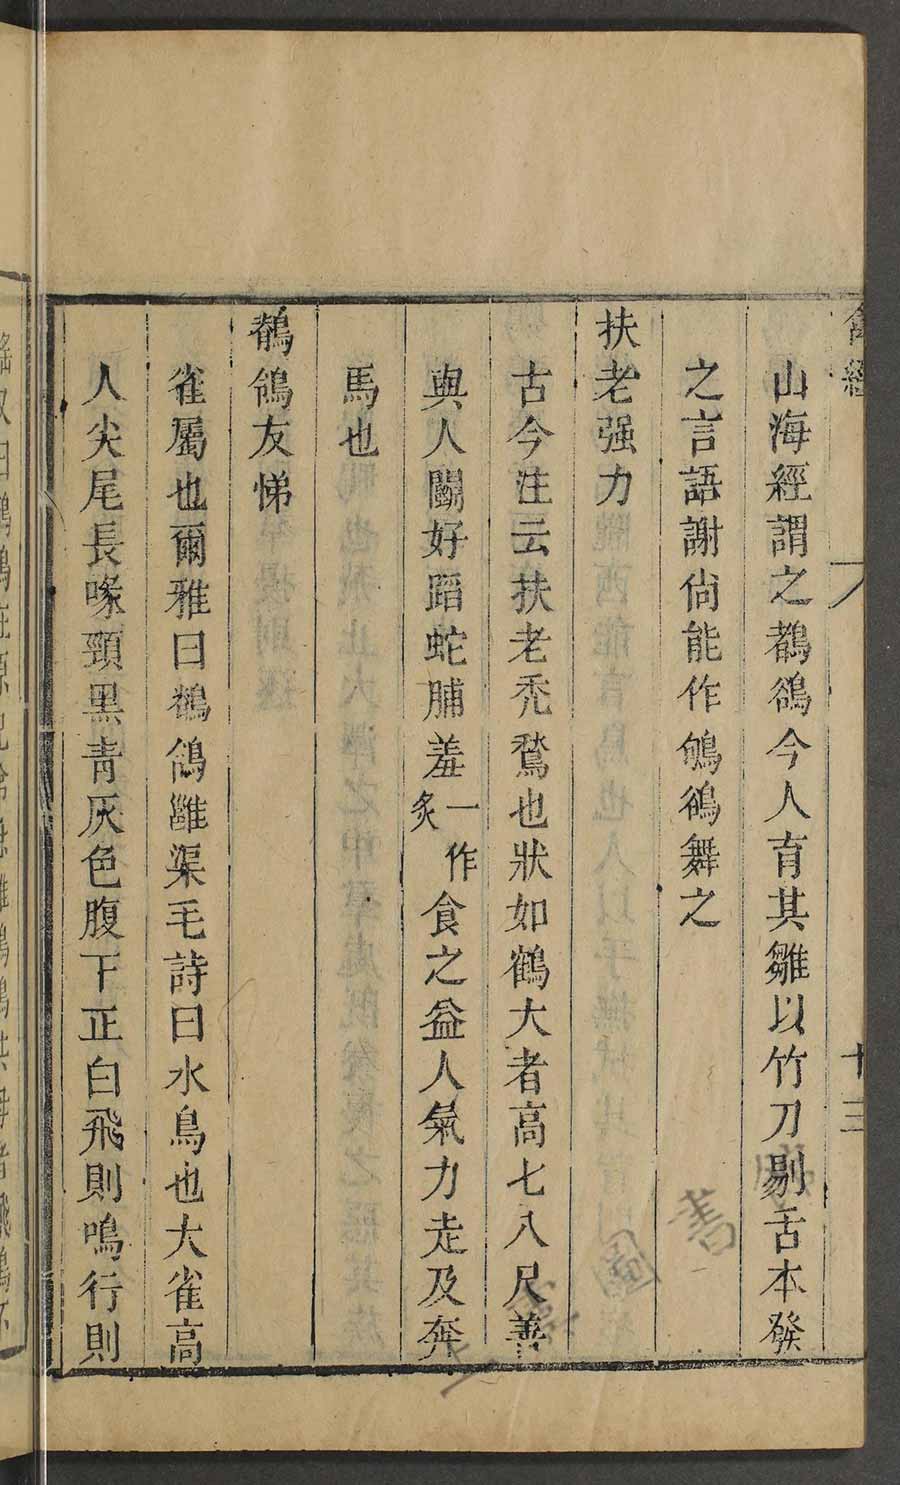 禽經
十三
山海經謂之鸜鵒今人育其雛以竹刀剔舌本發
之言語謝尚能作鴝鵒舞之
扶老强力
古今注云扶老禿鶖也狀如鶴大者高七八尺善
與人鬭好踏蛇脯羞一作炙食之益人氣力走及奔
馬也
鶺鴒友悌
雀屬也爾雅曰鶺鴒雝渠毛詩曰水鳥也大雀高
人尖尾長喙頸黑青灰色腹下正白飛則鳴行則